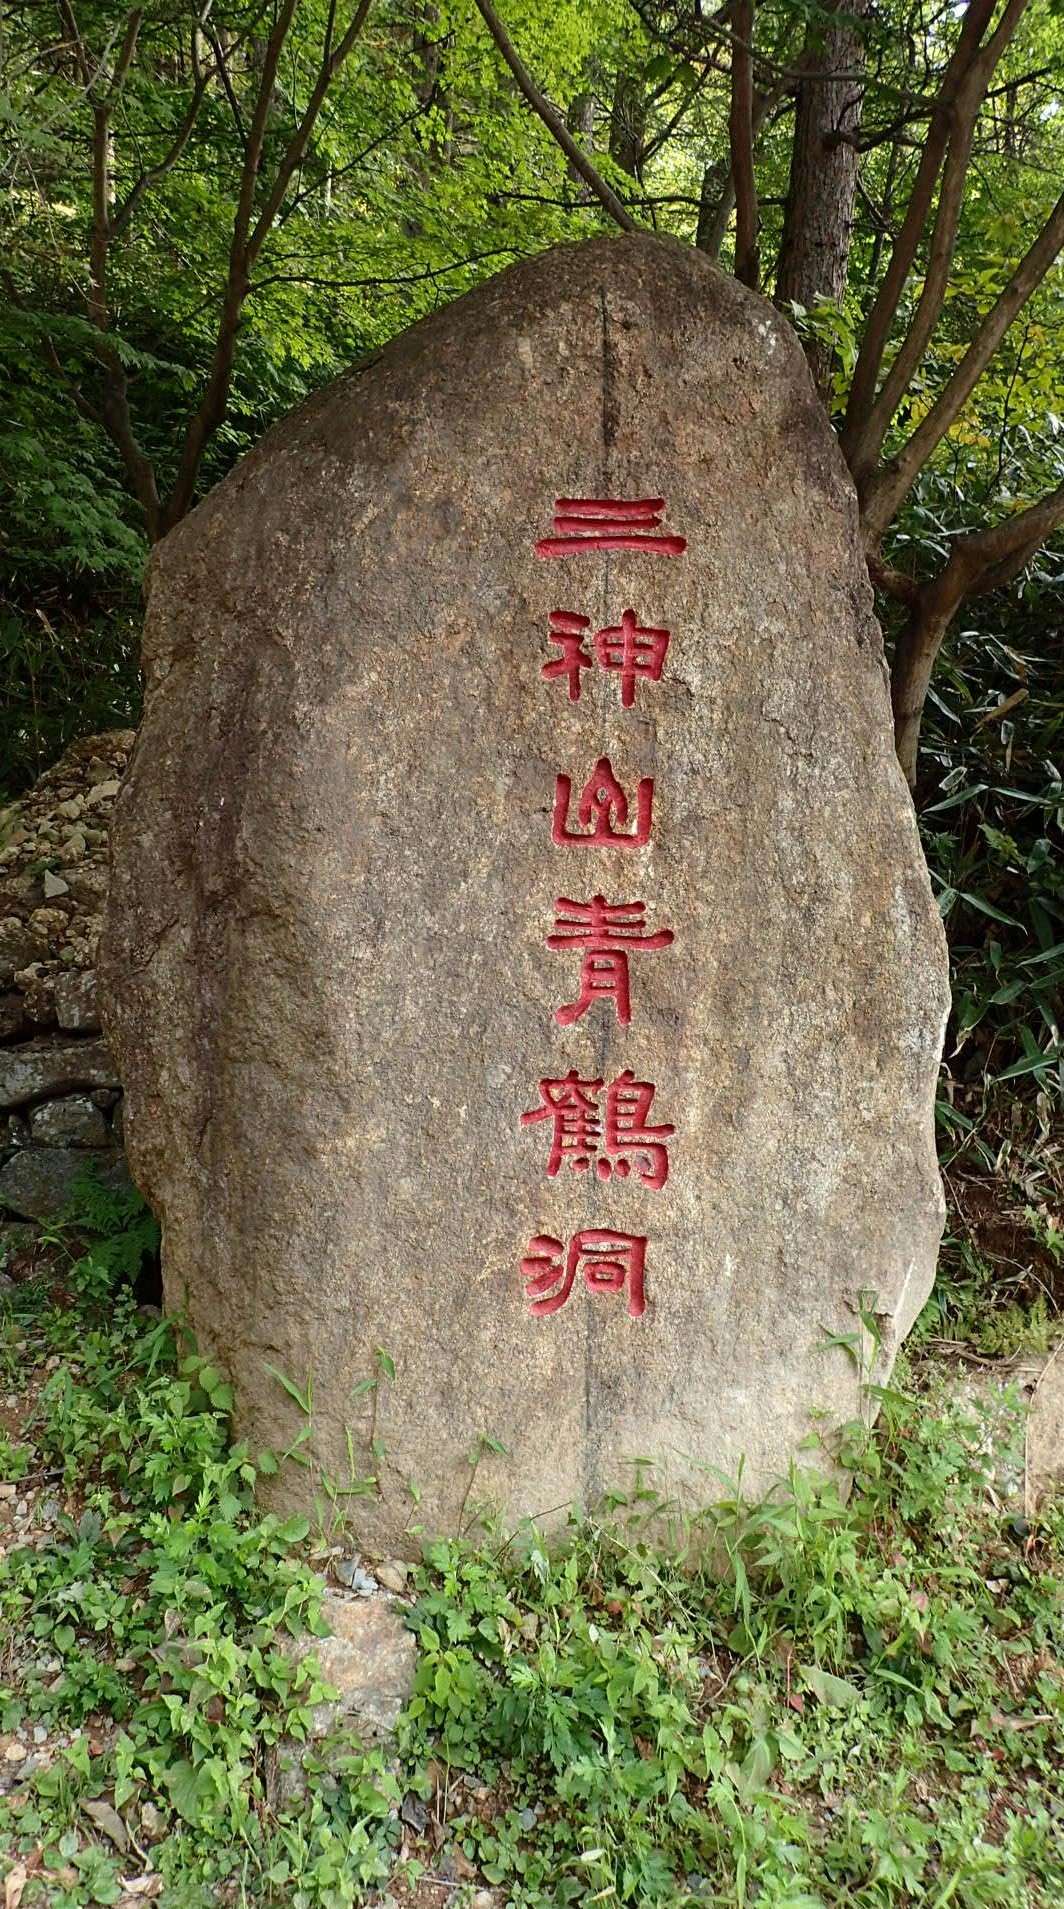 三神山青鶴洞